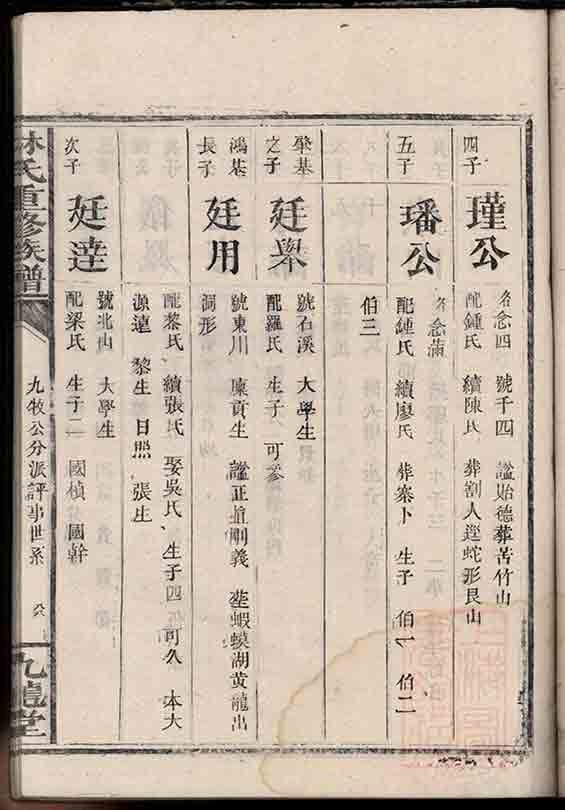 四子
瑾公
名念四 號千四 諡貽德葬苦竹山
配鍾氏 續陳氏 葬割人逕蛇形艮山
五子
璠公
名念滿
配鍾氏續廖氏 葬寨卜 生子 伯一 伯二
伯三
肇基
之子
廷舉
號石溪 大學生
配羅氏 生子一 可參
鴻基
長子
廷用
號東川 廩貢生 諡正道剛義 塟蝦蟆湖黄龍出
洞形
配黎氏 續張氏 娶吳氏 生子四 可久 本大
源遠 黎生 日照 張生
次子
廷達
號北山 大學生
配梁氏 生子二 國楨 國幹
林氏重修族譜
九牧公分派評事世系
九龍堂